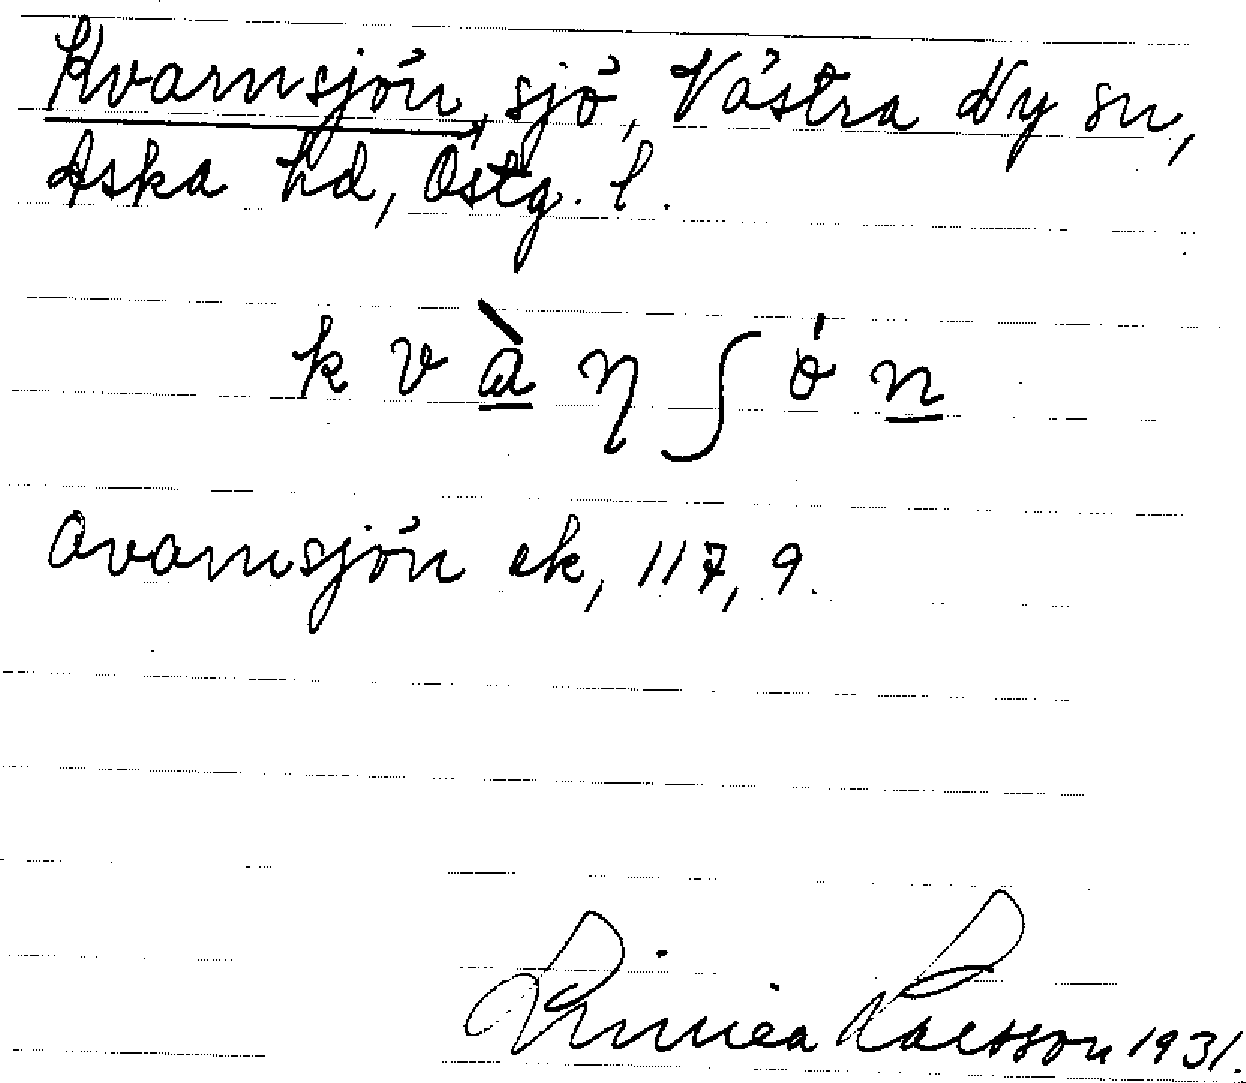 Kvarnsjön, sjö, Västra Ny sn,
Aska hd, Östg. l.
k v à η ʃ ó n
Qvarnsjön ek, 117, 9.
Linnea Larsson 1931.